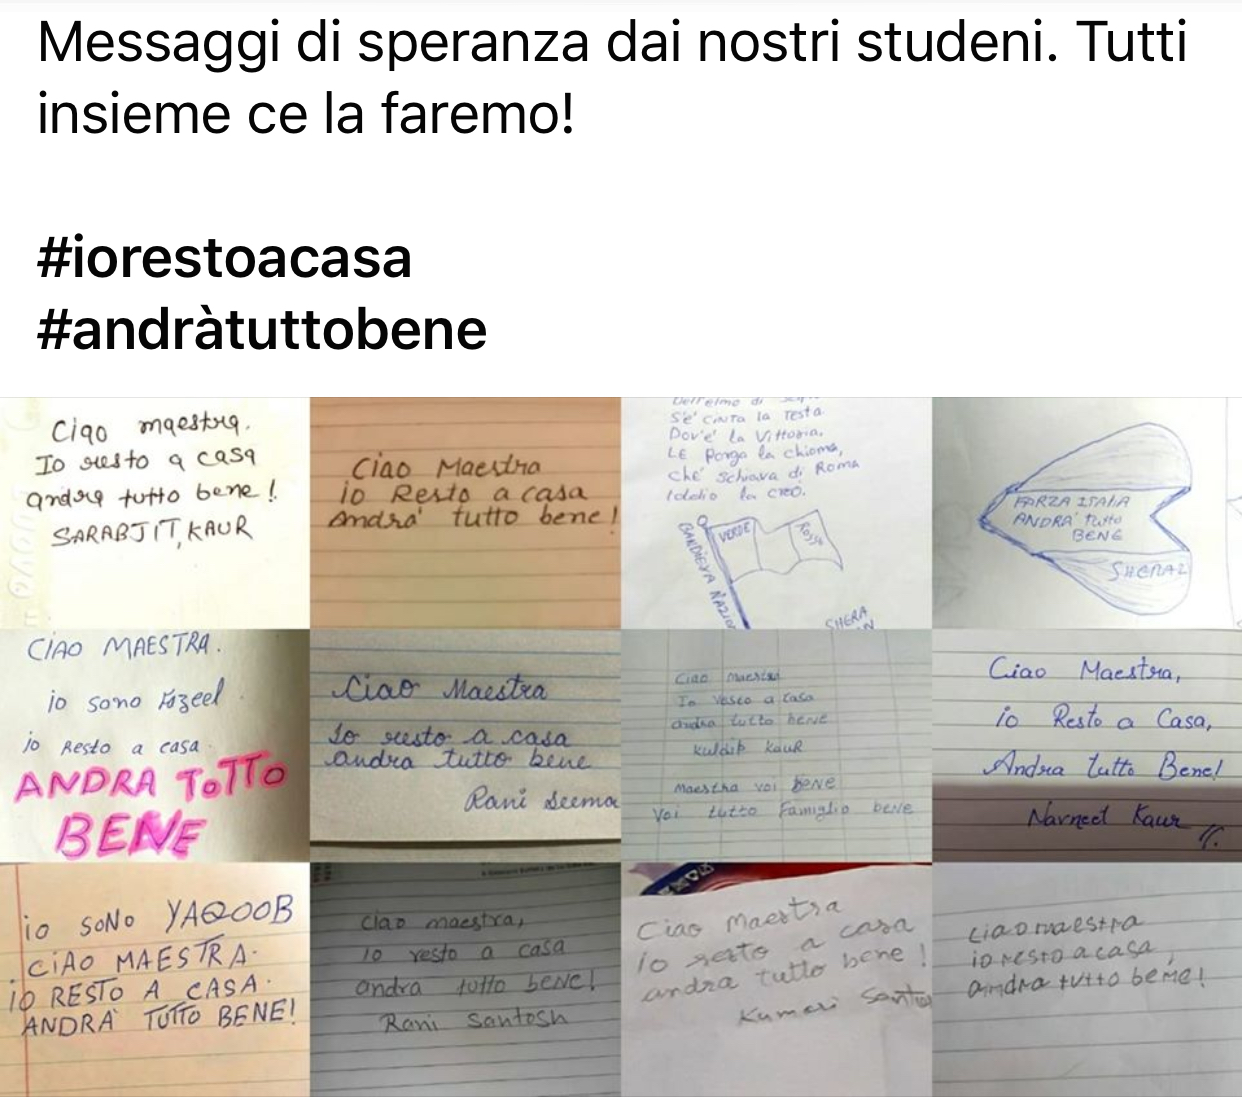 Messaggi di speranza dai nostri studeni. Tutti
insieme ce la faremo!
#iorestoacasa
#andràtuttobene
Ciao maestra.
Io resto a casa
andrà tutto bene!
SARABJIT, KAUR
Ciao Maestra
io Resto a casa
Andra' tutto bene!
Dell'elmo di
S'e' cinta la testa
Dov'e' la Vittoria.
LE Porga la chioma,
che' schiava di Roma
Iddio la creò.
VERDE
ROSSA
BANDIEVA NAZIO
SHERA
FARZA ISALIA
ANDRA' tutto
BENE
SHERAZ
CIAO MAESTRA.
io sono Fazeel
io Resto a casa.
ANDRA TOTTO
BENE
Ciao Maestra
Io resto a casa
andra tutto bene
Rani Seema
Ciao
Io vesto a casa
andra tutto bene
kuldip kauR
Maestha voi BENE
Voi tutto Famiglio bene
Ciao Maestra,
io Resto a Casa,
Andra tutto Bene!
Navneet Kaur
io SONO YAQOOB
CIAO MAESTRA.
IO RESTO A CASA.
ANDRA' TUTTO BENE!
ciao maestra,
io resto a casa
andra tutto bene!
Rani Santosh
Ciao Maestra
io resto a casa
andra tutto bene!
Kumari Santo
ciao maestra
io resto a casa,
andra tutto bene!